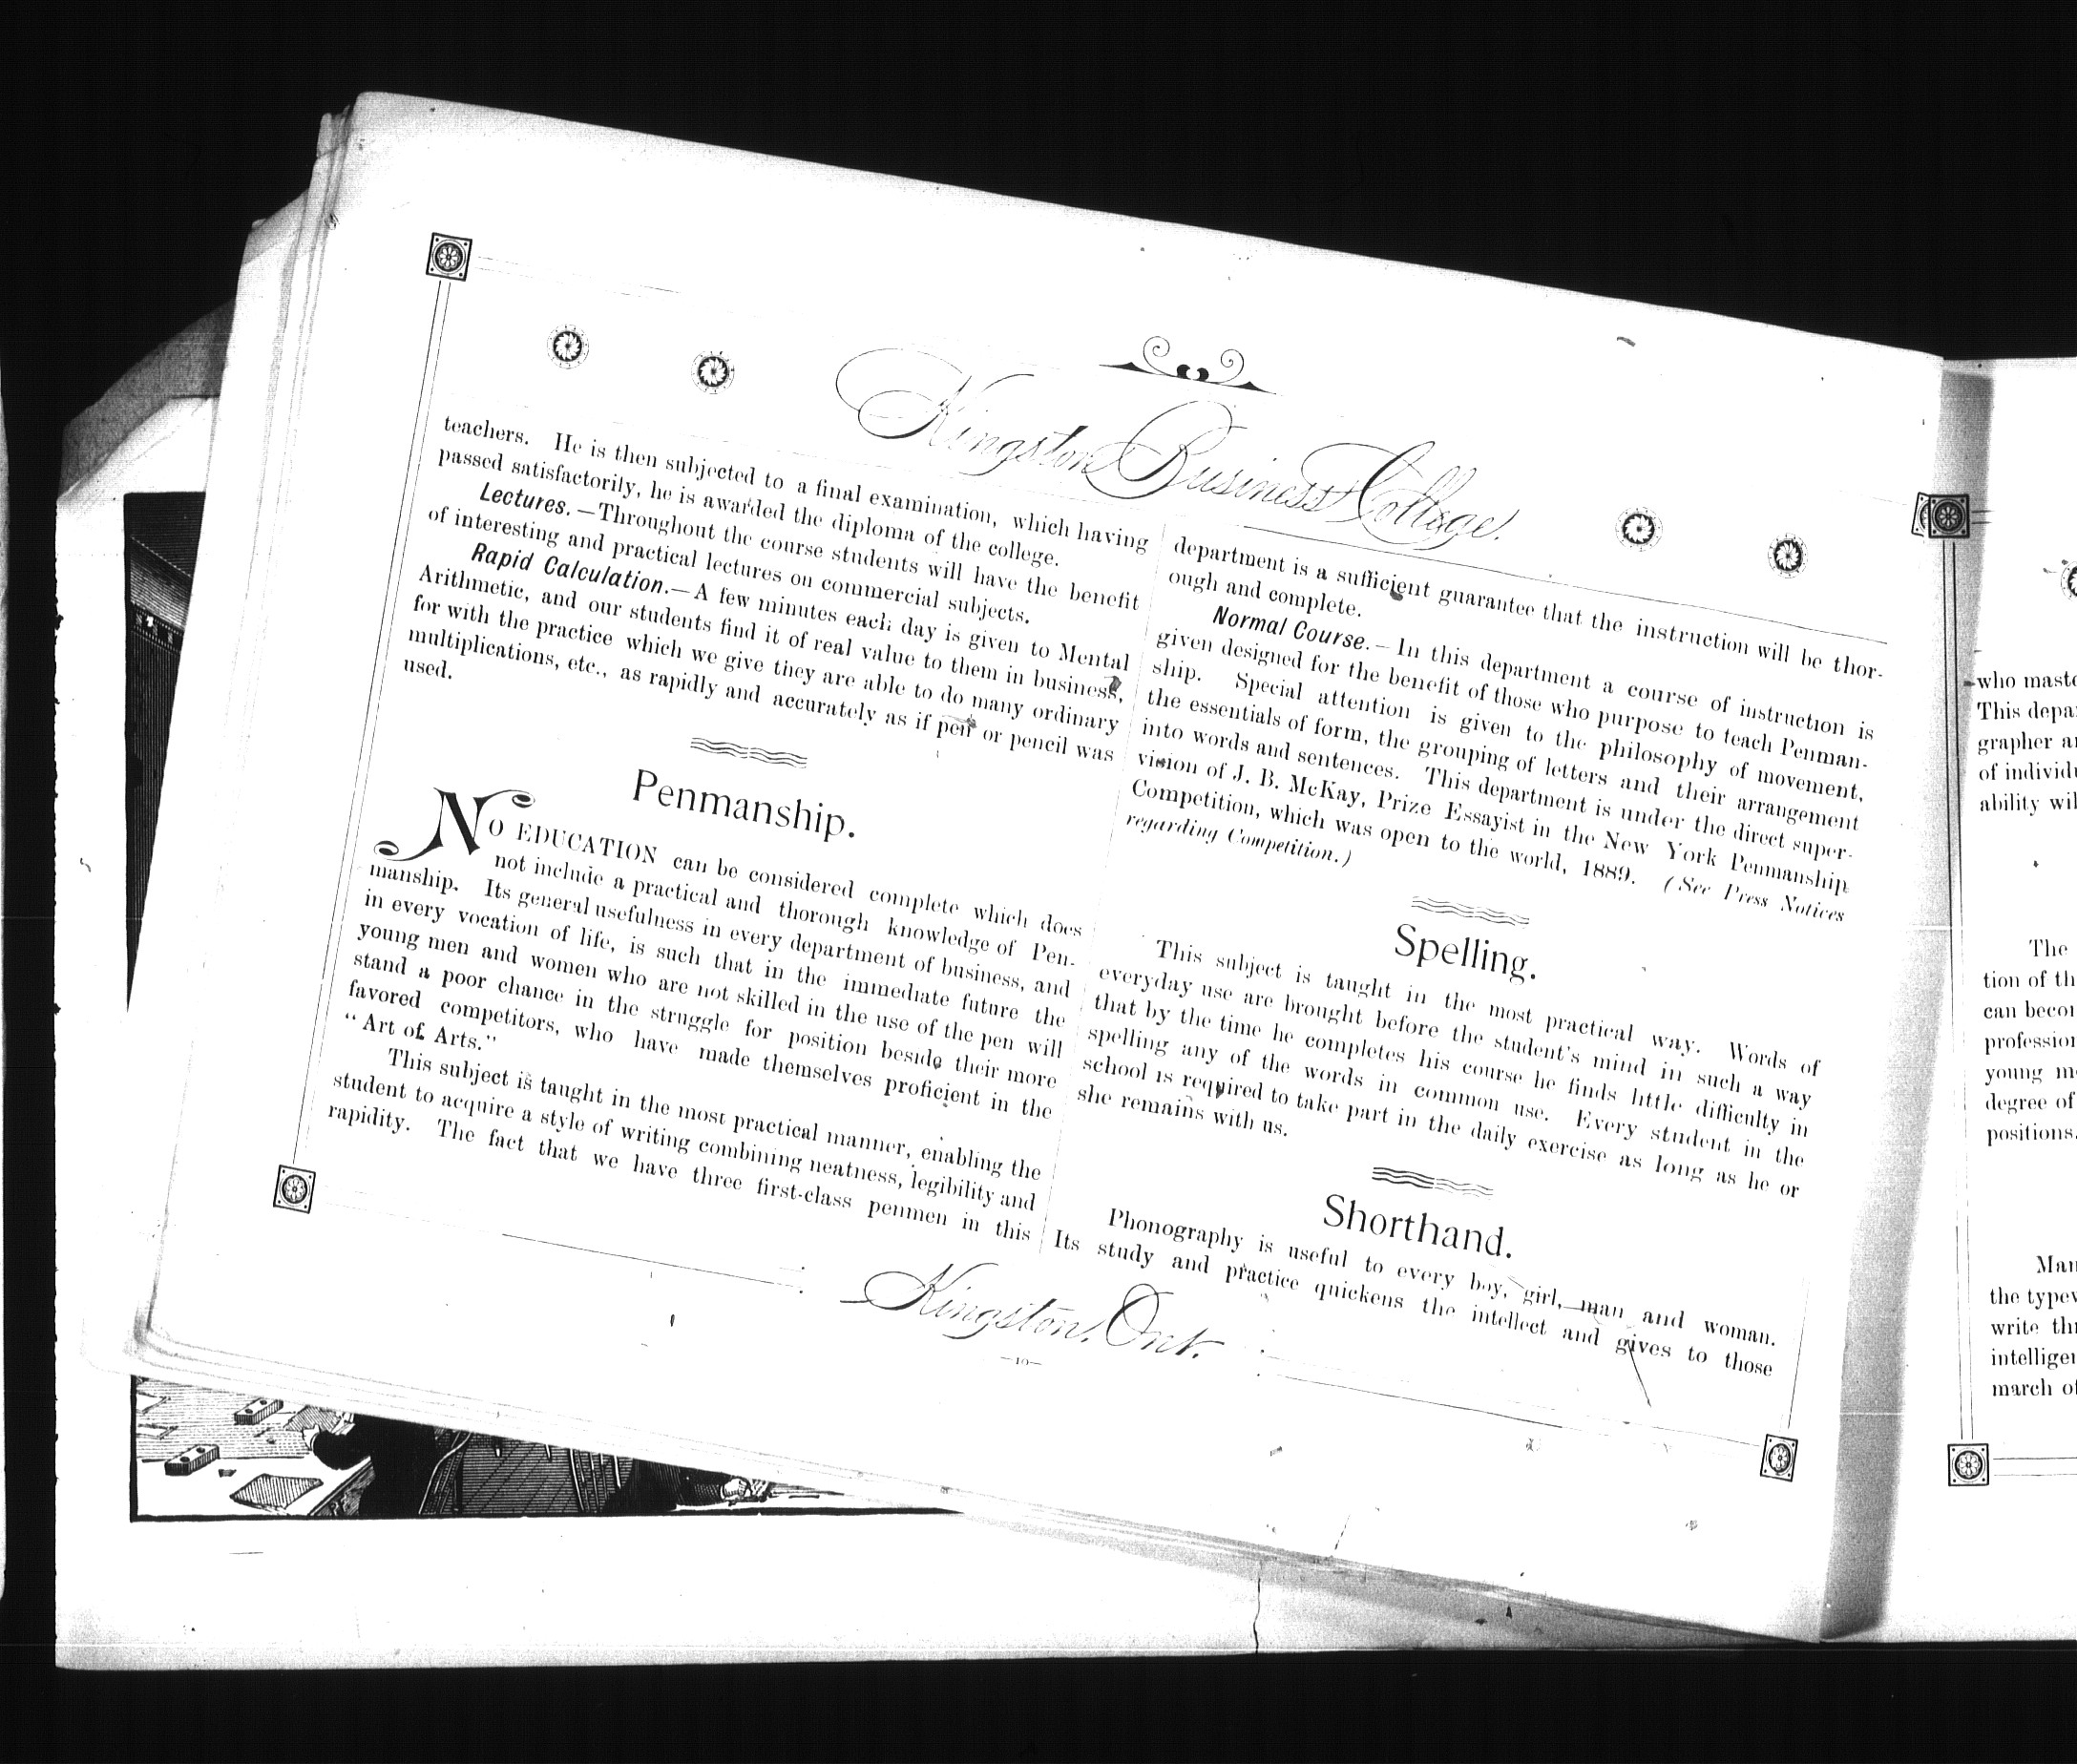 Kingston Business College.
teachers. He is then subjected to a final examination, which having
passed satisfactorily, he is awarded the diploma of the college.
Lectures.—Throughout the course students will have the benefit
of interesting and practical lectures on commercial subjects.
Rapid Calculation.—A few minutes each day is given to Mental
Arithmetic, and our students find it of real value to them in business,
for with the practice which we give they are able to do many ordinary
multiplications, etc., as rapidly and accurately as if pen or pencil was
used.
Penmanship.
NO EDUCATION can be considered complete which does
not include a practical and thorough knowledge of Pen-
manship. Its general usefulness in every department of business, and
in every vocation of life, is such that in the immediate future the
young men and women who are not skilled in the use of the pen will
stand a poor chance in the struggle for position beside their more
favored competitors, who have made themselves proficient in the
“Art of Arts.”
This subject is taught in the most practical manner, enabling the
student to acquire a style of writing combining neatness, legibility and
rapidity. The fact that we have three first-class penmen in this
department is a sufficient guarantee that the instruction will be thor-
ough and complete.
Normal Course.—In this department a course of instruction is
given designed for the benefit of those who purpose to teach Penman-
ship. Special attention is given to the philosophy of movement,
the essentials of form, the grouping of letters and their arrangement
into words and sentences. This department is under the direct super-
vision of J. B. McKay, Prize Essayist in the New York Penmanship
Competition, which was open to the world, 1889. (See Press Notices
regarding Competition.)
Spelling.
This subject is taught in the most practical way. Words of
everyday use are brought before the student's mind in such a way
that by the time he completes his course he finds little difficulty in
spelling any of the words in common use. Every student in the
school is required to take part in the daily exercise as long as he or
she remains with us.
Shorthand.
Phonography is useful to every boy, girl, man and woman.
Its study and practice quickens the intellect and gives to those
Kingston, Ont.
—10—
who
This
grapher
of
ability
The
tion of
can
young
degree of
positions.
the
write
march